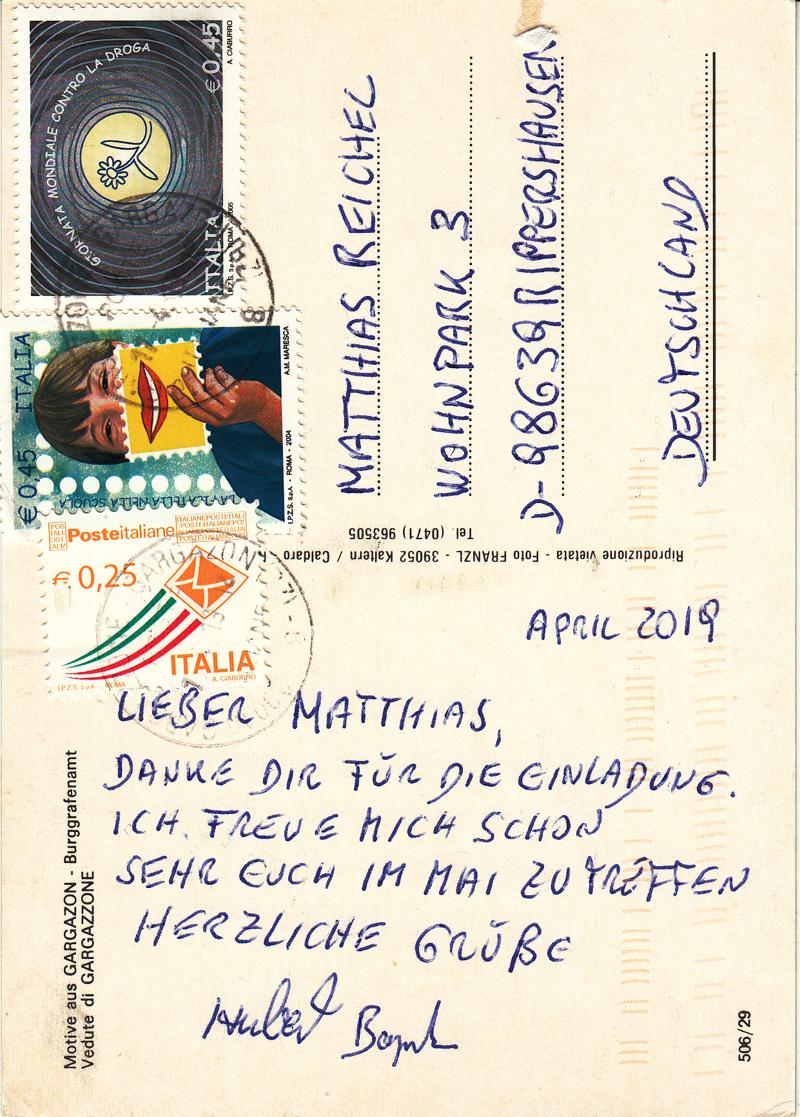 GIORNATA MONDIALE CONTRO LA DROGA
€ 0,45
A. CIABURRO
ITALIA
I.P.Z.S. S.p.A. - ROMA - 2005
ITALIA
€ 0,45
LA FILATELIA NELLA SCUOLA
A.M. MARESCA
I.P.Z.S. S.p.A. - ROMA - 2004
Posteitaliane
€ 0,25
ITALIA
A. CIABURRO
I.P.Z.S. S.p.A. ROMA
GARGAZON
MATTHIAS REICHEL
WOHNPARK 3
D-98639 RIPPERSHAUSEN
DEUTSCHLAND
Riproduzione vietata - Foto FRANZL - 39052 Kaltern / Caldaro
Tel. (0471) 963505
APRIL 2019
LIEBER MATTHIAS,
DANKE DIR FÜR DIE EINLADUNG.
ICH FREUE MICH SCHON
SEHR EUCH IM MAI ZU TREFFEN
HERZLICHE GRÜßE
Motive aus GARGAZON - Burggrafenamt
Vedute di GARGAZZONE
506/29